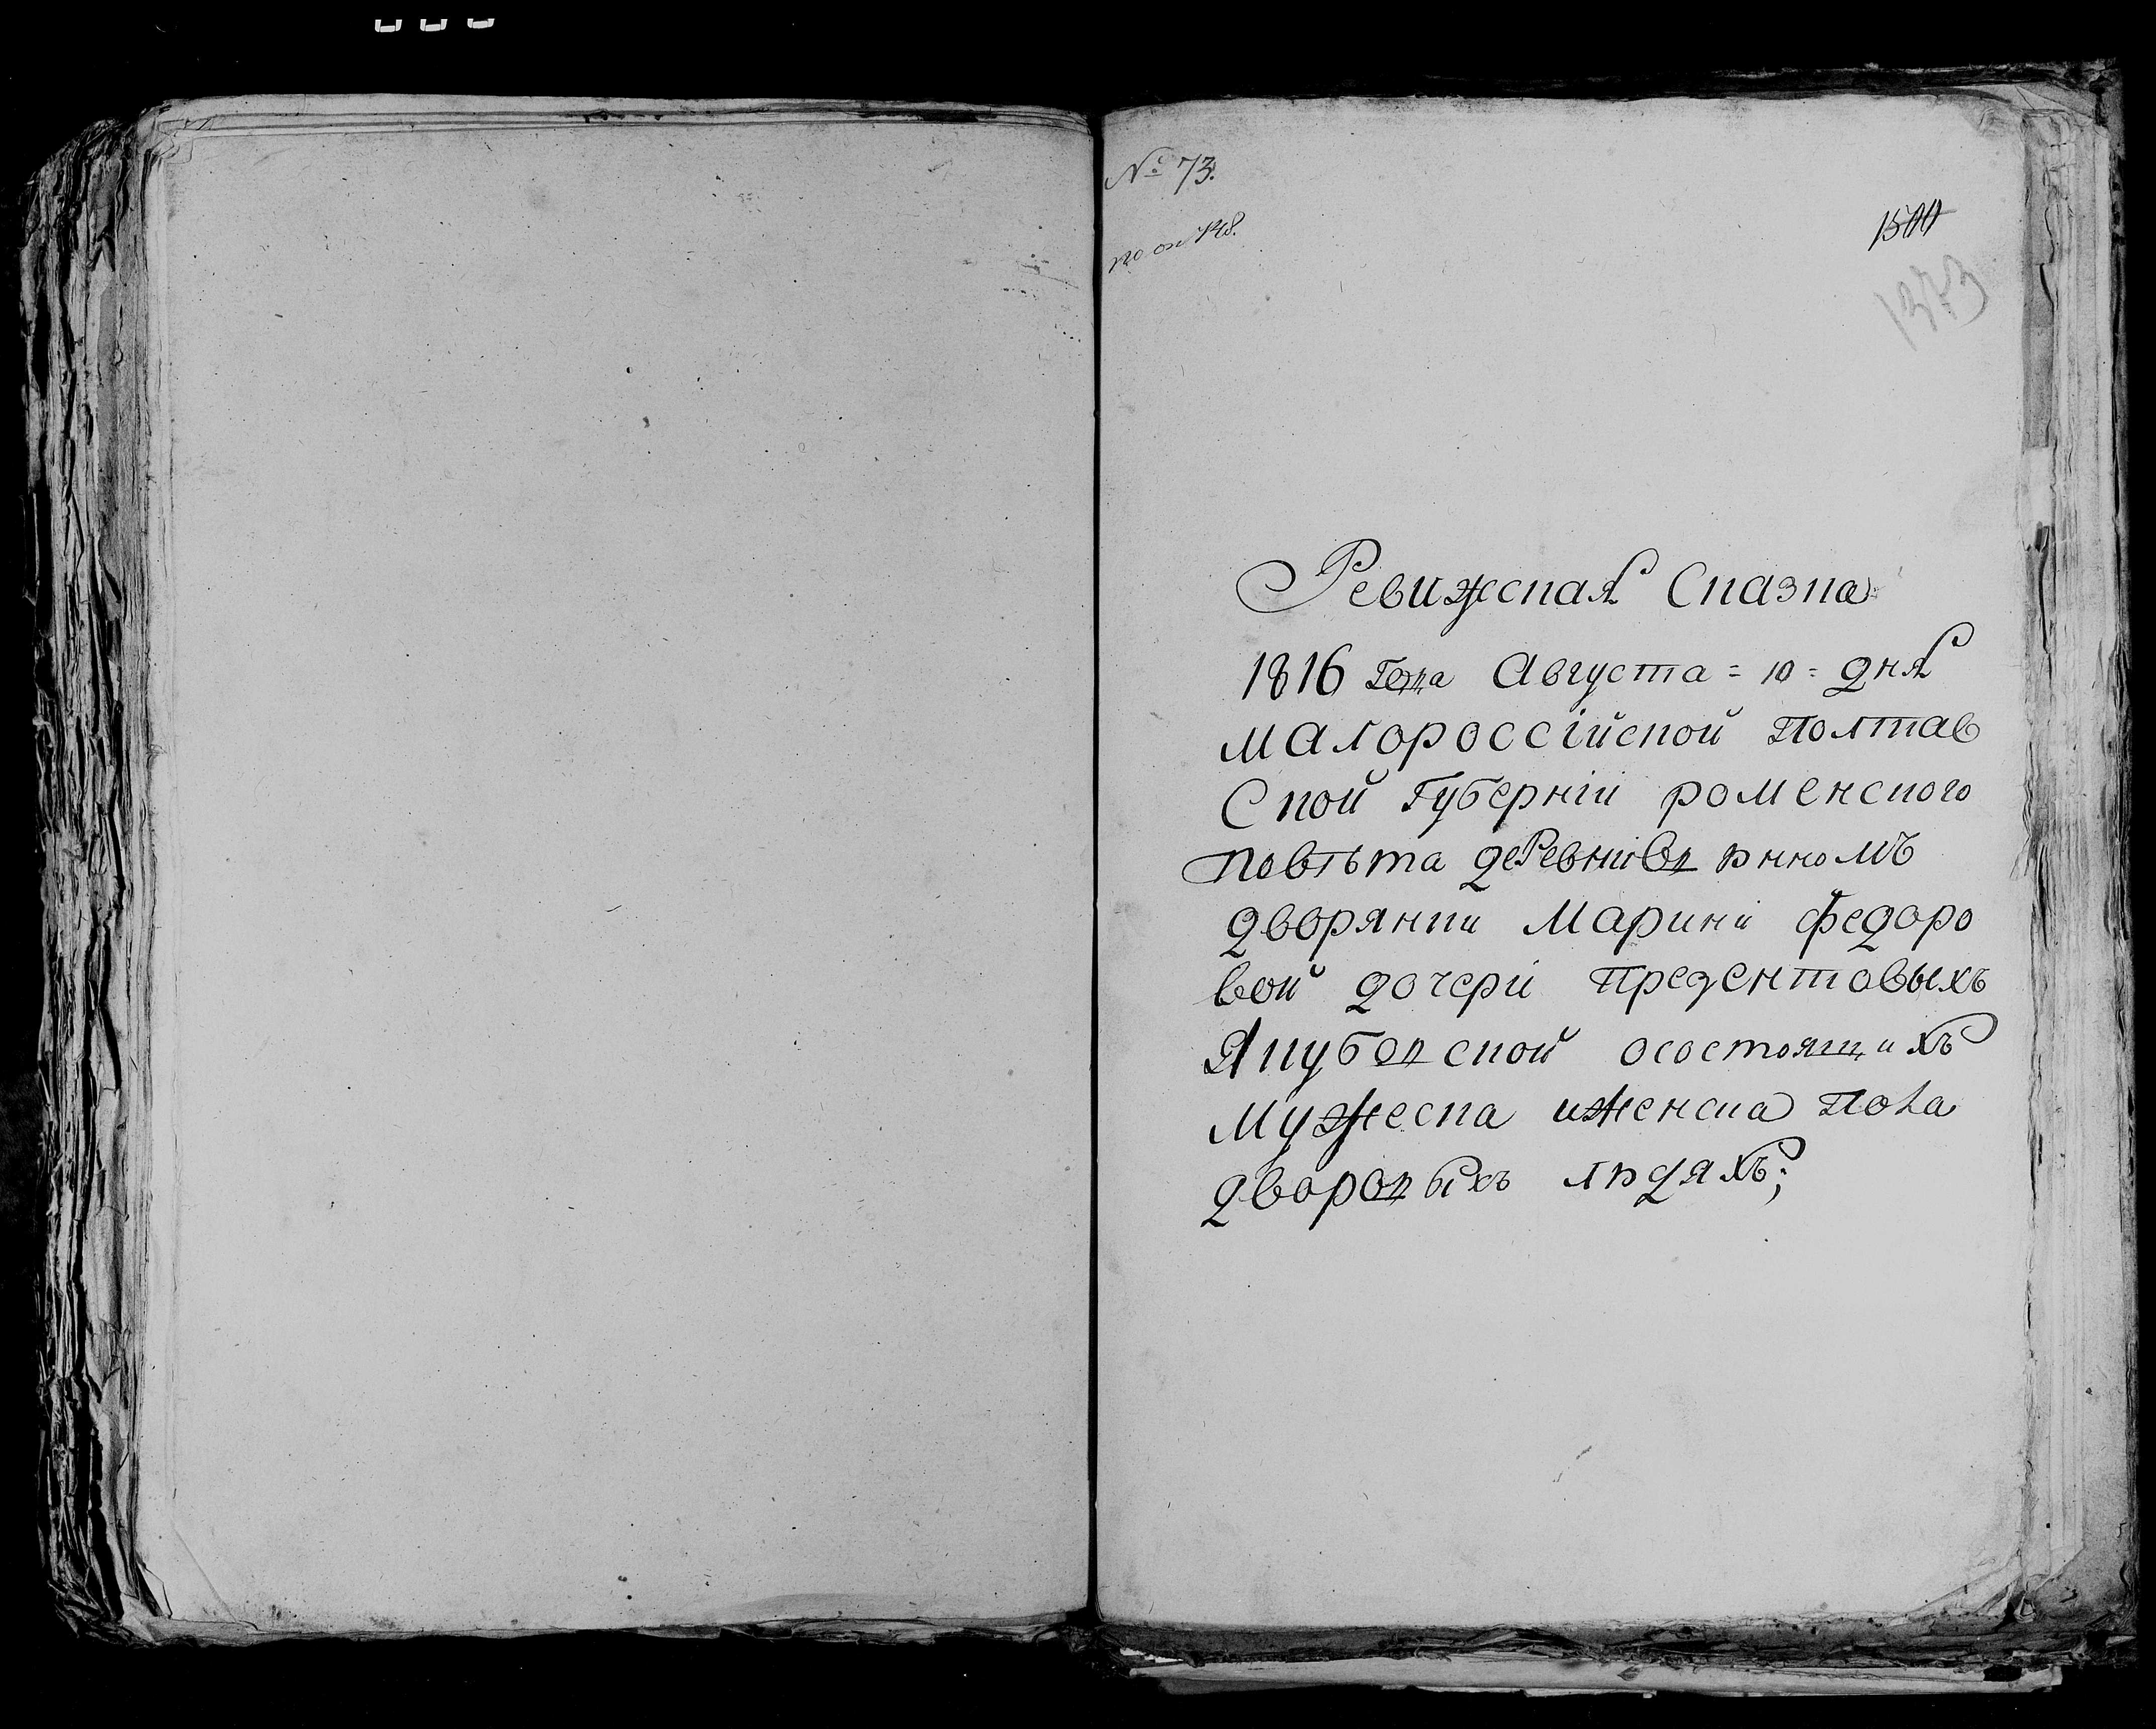 № 73.
по оп 148.
1500
1373
Ревижская Сказка
1816 Года Августа = 10 = дня
малороссійской Полтав
Ской Губерніи роменского
повѣта деРевни
дворянки Марини федоро
вой дочери Презентовыхъ
Якубовской осостоящихъ
мужеска иженска пола
дворовыхъ людяхъ;